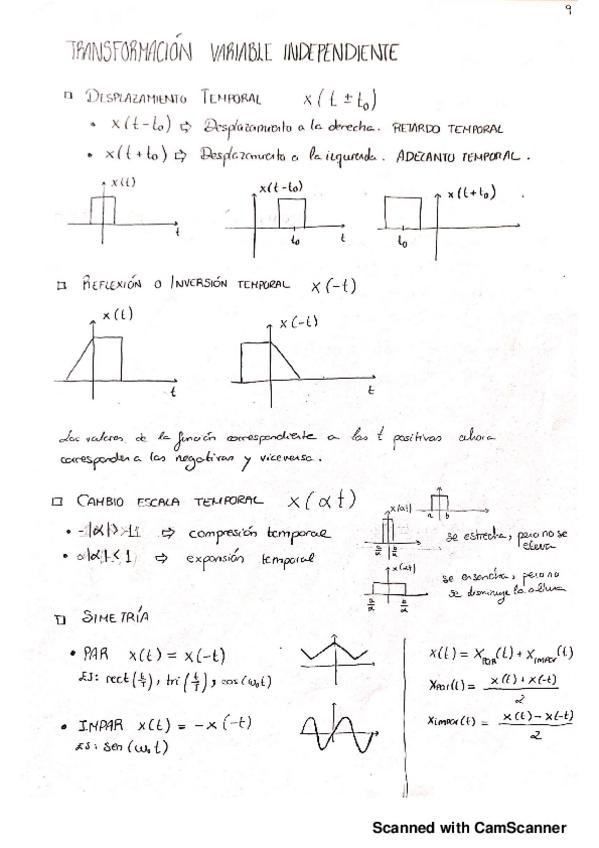 9
TRANSFORMACIÓN VARIABLE INDEPENDIENTE
DESPLAZAMIENTO TEMPORAL x(t ± t₀)
• x(t-t₀) ⇨ Desplazamiento a la derecha. RETARDO TEMPORAL
• x(t+t₀) ⇨ Desplazamiento a la izquierda. ADELANTO TEMPORAL.
x(t) x(t-t₀) x(t+t₀)
t t₀ t t₀
REFLEXIÓN O INVERSIÓN TEMPORAL x(-t)
x(t) x(-t)
t t
Los valores de la función correspondiente a los t positivos ahora
corresponden a los negativos y viceversa.
CAMBIO ESCALA TEMPORAL x(αt)
x(αt) a b
• |α|>1 ⇨ compresión temporal
se estrecha, pero no se
eleva
• |α|<1 ⇨ expansión temporal
x(αt)
se ensancha, pero no
se disminuye la altura
SIMETRÍA
• PAR x(t) = x(-t)
EJ: rect(t/T), tri(t/T), cos(ω₀t)
• IMPAR x(t) = -x(-t)
EJ: sen(ω₀t)
x(t) = xPAR(t) + xIMPAR(t)
xPAR(t) = x(t)+x(-t) / 2
xIMPAR(t) = x(t)-x(-t) / 2
Scanned with CamScanner